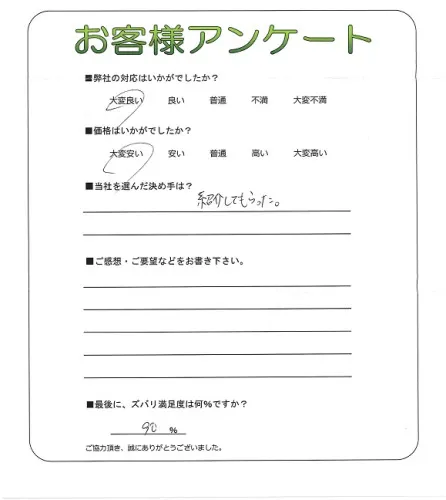 お客様アンケート
■弊社の対応はいかがでしたか?
大変良い 良い 普通 不満 大変不満
■価格はいかがでしたか?
大変安い 安い 普通 高い 大変高い
■当社を選んだ決め手は?
紹介してもらった。
■ご感想・ご要望などをお書き下さい。
■最後に、ズバリ満足度は何%ですか?
90 %
ご協力頂き、誠にありがとうございました。